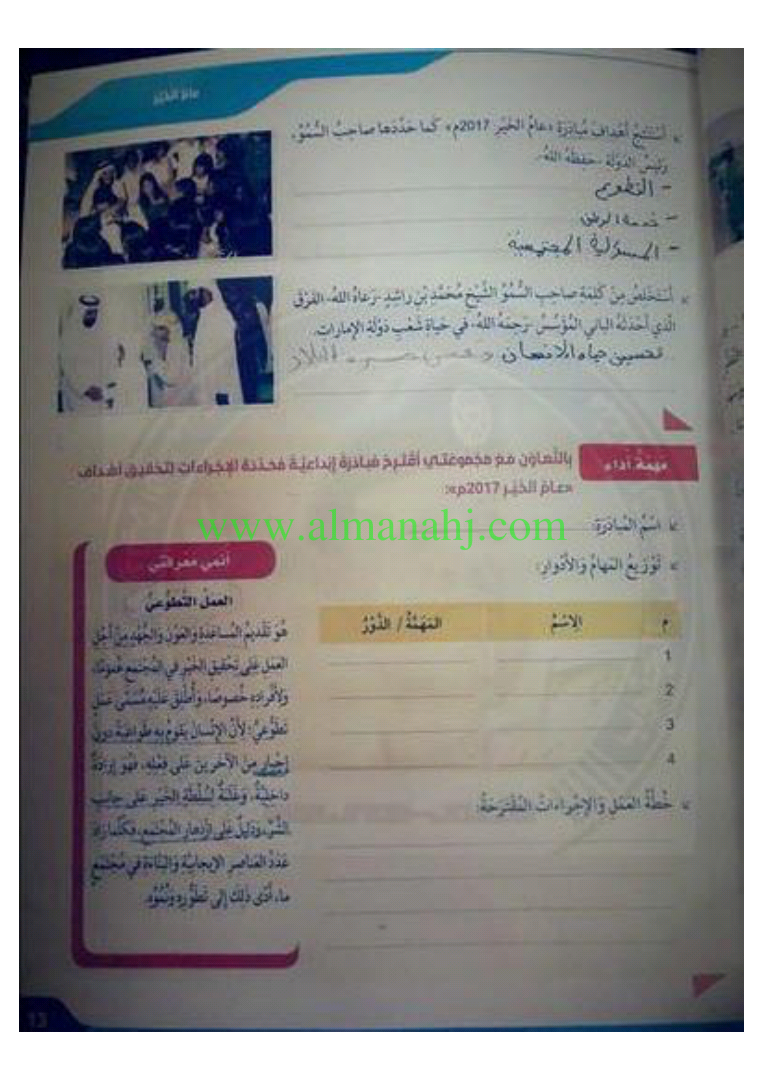 عام الخير
أستنتج أهداف مبادرة «عام الخير 2017م» كما حددها صاحب السمو،
رئيس الدولة -حفظه الله-.
- التطوع
- خدمة الوطن
- المسؤولية المجتمعية
أستخلص من كلمة صاحب السمو الشيخ محمد بن راشد -رعاه الله- الفرق
الذي أحدثه الباني المؤسس -رحمه الله- في حياة شعب دولة الإمارات.
تحسين حياة الانسان
مهمة أداء:
بالتعاون مع مجموعتي أقترح مبادرة إبداعية محددة الإجراءات لتحقيق أهداف
«عام الخير 2017م»:
www.almanahj.com
اسم المبادرة:
توزيع المهام والأدوار:
م الاسم المهمة / الدور
1
2
3
4
خطة العمل والإجراءات المقترحة:
أنمي معرفتي
العمل التطوعي
هو تقديم المساعدة والعون والجهد من أجل
العمل على تحقيق الخير في المجتمع عموما،
ولأفراده خصوصا، وأطلق عليه مسمى عمل
تطوعي؛ لأن الإنسان يقوم به طواعية دون
إجبار من الآخرين على فعله، فهو إرادة
داخلية، وغلبة لسلطة الخير على جانب
الشر، ودليل على ازدهار المجتمع، فكلما زاد
عدد العناصر الإيجابية والبناءة في مجتمع
ما، أدى ذلك إلى تطوره ونموه.
13